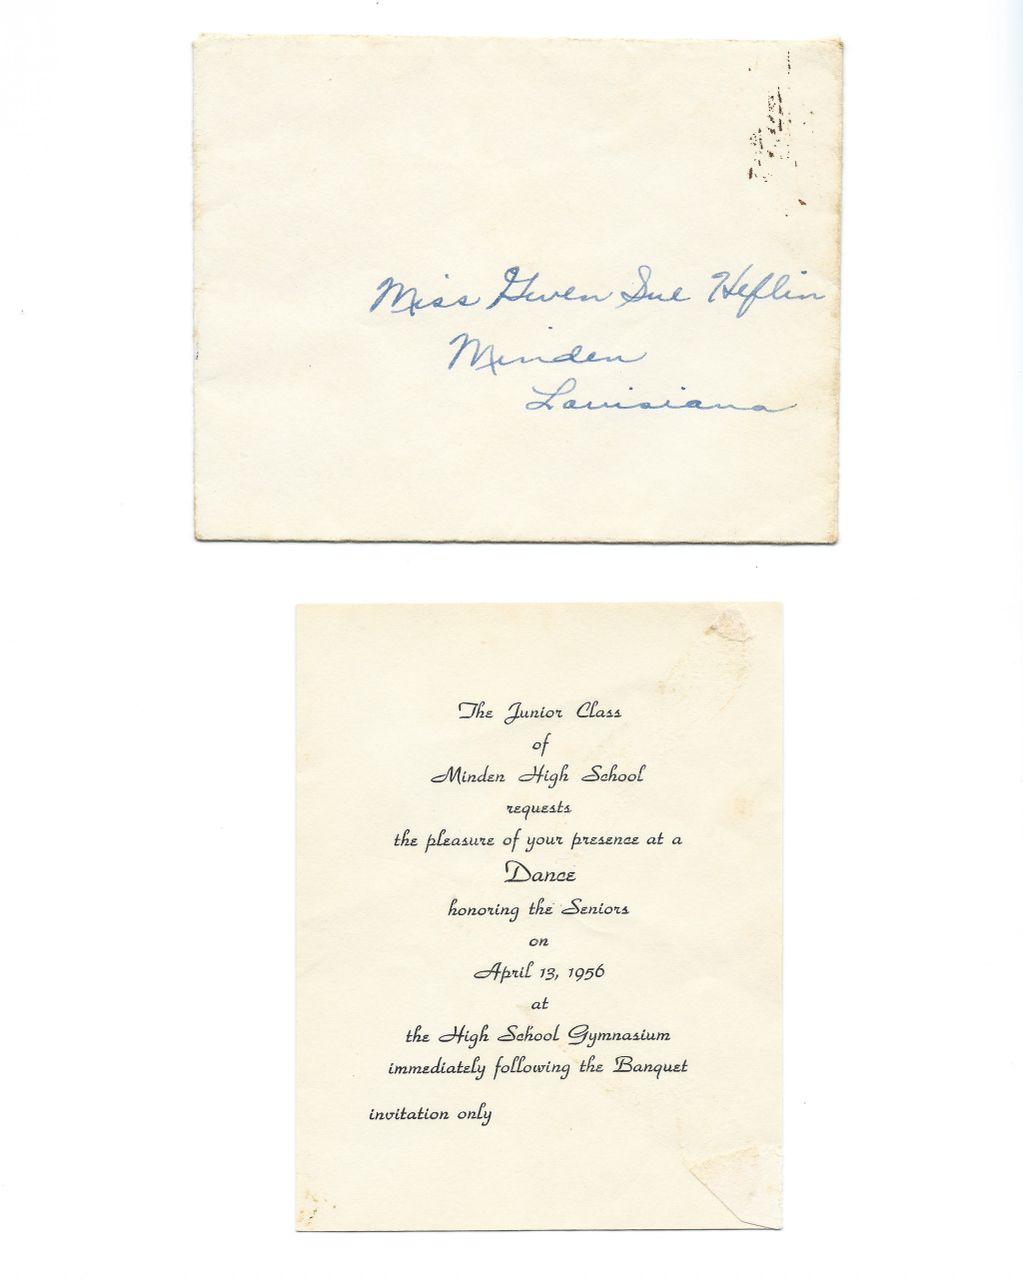 Miss Gwen Sue Heflin
Minden
Louisiana
The Junior Class
of
Minden High School
requests
the pleasure of your presence at a
Dance
honoring the Seniors
on
April 13, 1956
at
the High School Gymnasium
immediately following the Banquet
invitation only